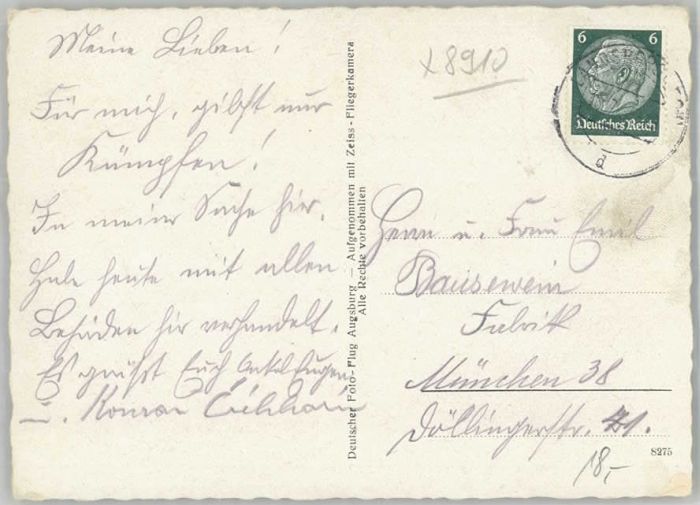 Meine Lieben!
Für mich, gibst nur
Kämpfen!
In meiner Sache hier,
Habe heute mit allen
Behöden hir verhandelt.
Es grüsst Euch Onkel Eugen,
u. Konrad
Deutscher Foto-Flug Augsburg. — Aufgenommen mit Zeiss-Fliegerkamera
Alle Rechte vorbehalten
x8910
6 6
Deutsches Reich
d
Herrn u. Frau Emil
Bausewein
Fabrik
München 38
Döllingerstr. 41.
8275
18,-